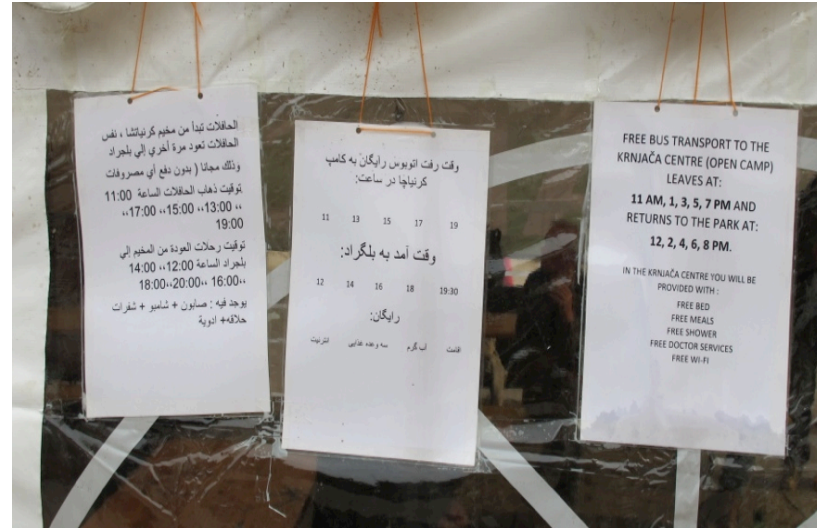 الحافلات تبدأ من مخيم كرنياتشا ، نفس
الحافلات تعود مرة أخري إلي بلجراد
وذلك مجانا ( بدون دفع أي مصروفات
توقيت ذهاب الحافلات الساعة 11:00
،، 13:00،، 15:00،، 17:00،،
19:00
توقيت رحلات العودة من المخيم إلي
بلجراد الساعة 12:00،، 14:00
،،16:00 ،،18:00،،20:00
يوجد فيه : صابون + شامبو + شفرات
حلاقه+ ادوية
وقت رفت اتوبوس رايگان به كامپ
كرنياچا در ساعت:
11 13 15 17 19
وقت آمد به بلگراد:
12 14 16 18 19:30
رايگان:
اقامت اب گرم سه وعده غذايى انترنيت
FREE BUS TRANSPORT TO THE
KRNJAČA CENTRE (OPEN CAMP)
LEAVES AT:
11 AM, 1, 3, 5, 7 PM AND
RETURNS TO THE PARK AT:
12, 2, 4, 6, 8 PM.
IN THE KRNJAČA CENTRE YOU WILL BE
PROVIDED WITH :
FREE BED
FREE MEALS
FREE SHOWER
FREE DOCTOR SERVICES
FREE WI-FI